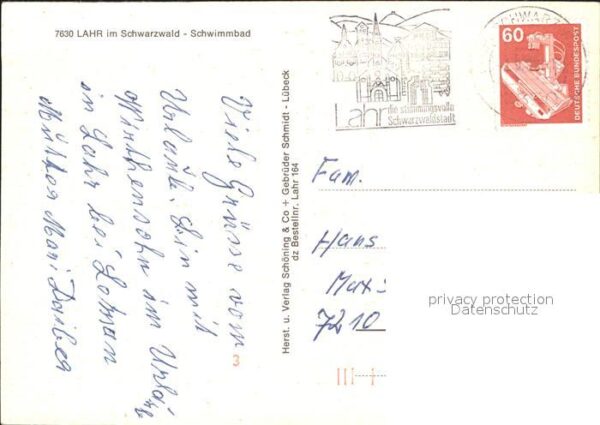 7630 LAHR im Schwarzwald - Schwimmbad
Viele Grüsse vom
Urlaub. Bin mit
in Lahr bei
Mari
Herst. u. Verlag Schöning & Co + Gebrüder Schmidt - Lübeck
dz Bestellnr. Lahr 164
Lahr die stimmungsvolle
Schwarzwaldstadt
SCHWARZ
60
DEUTSCHE BUNDESPOST
Fam.
Hans
7210
privacy protection
Datenschutz
3